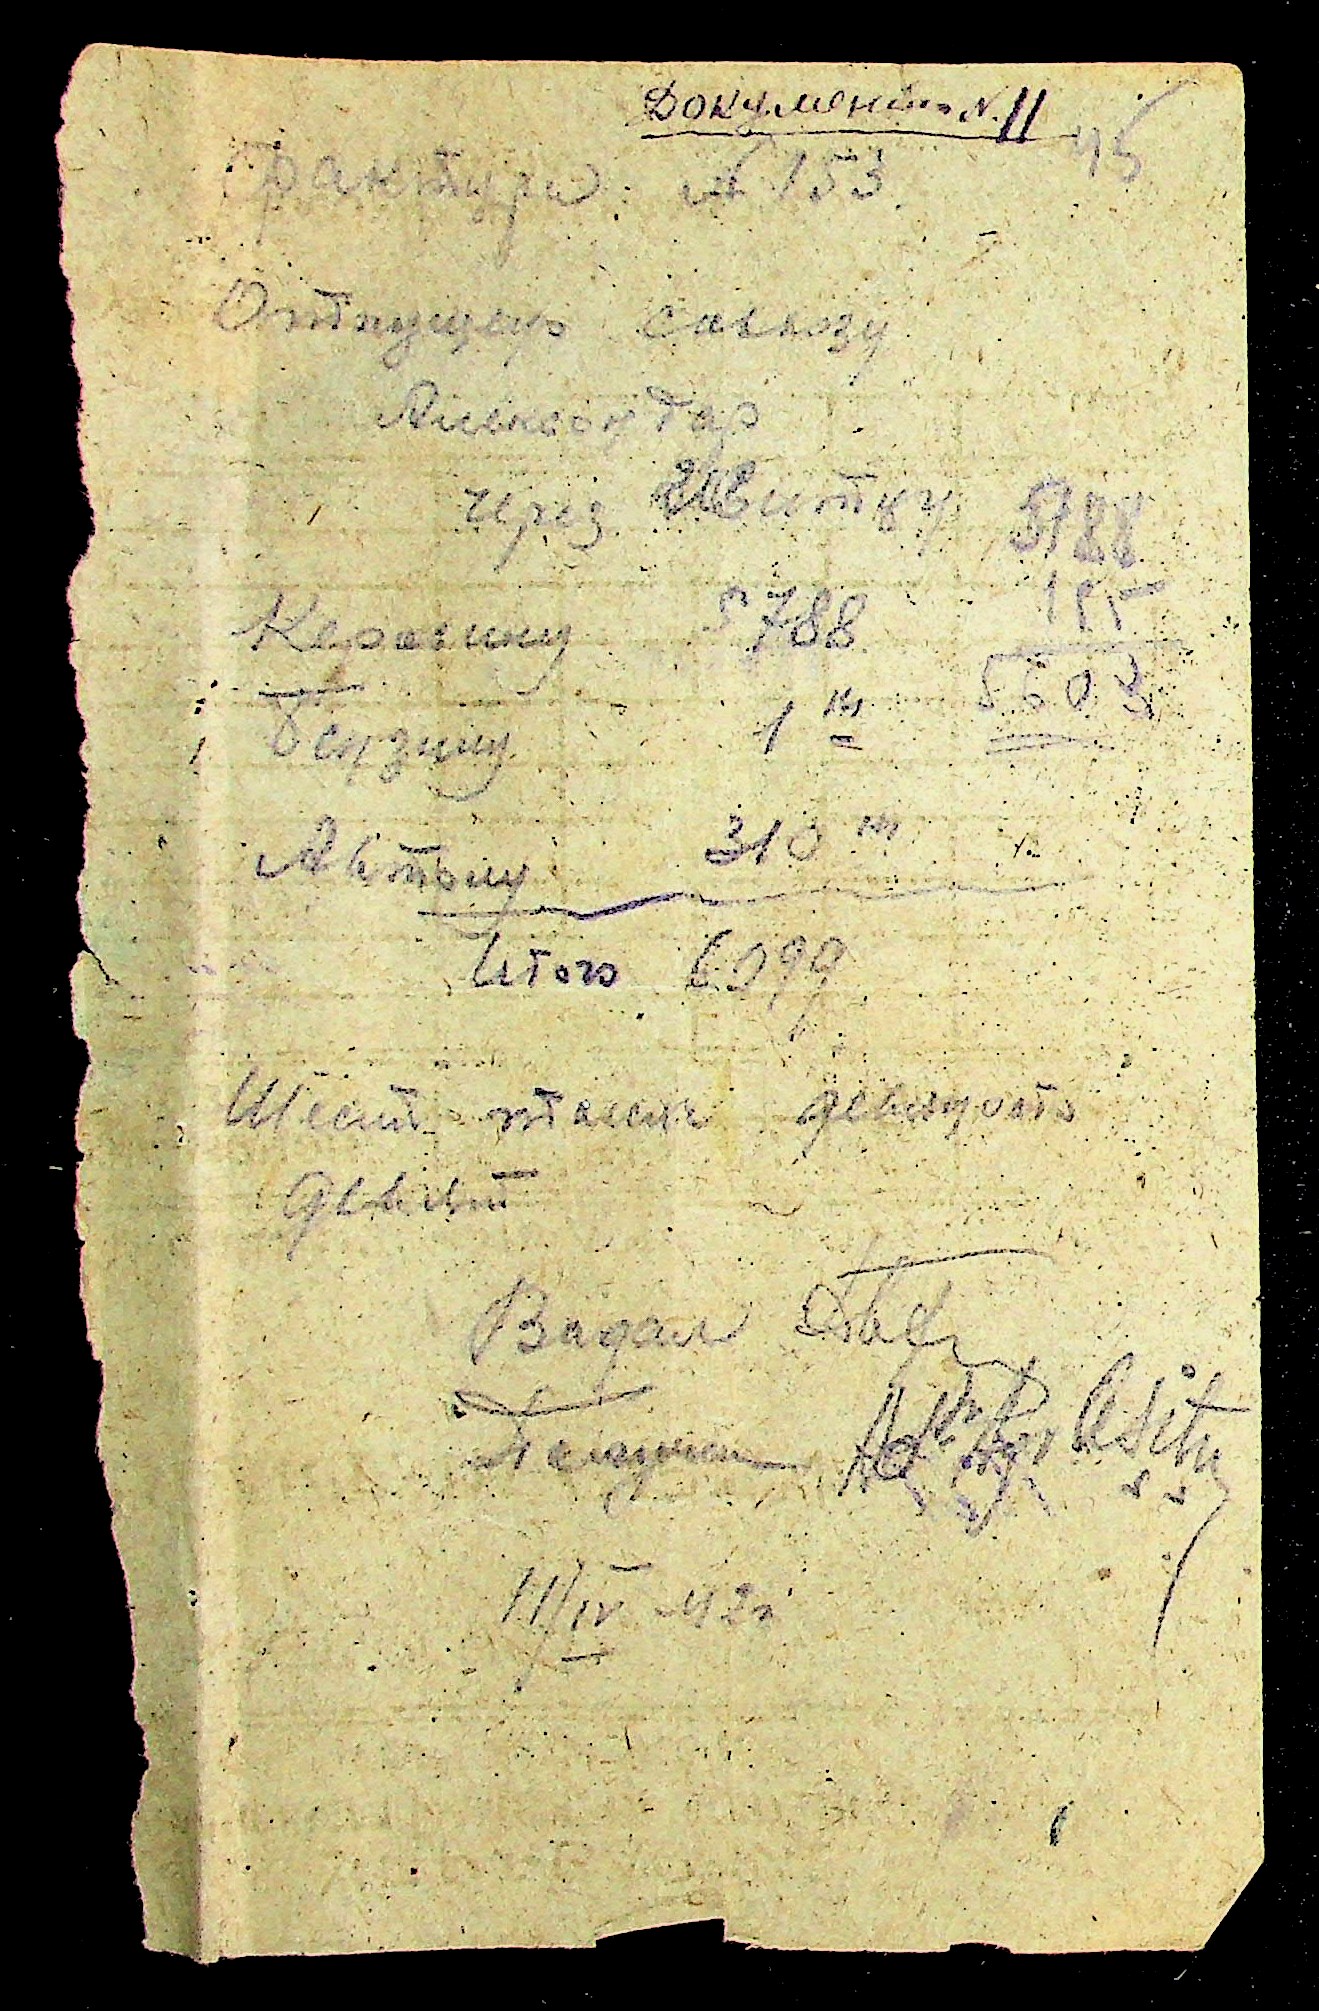 Документ N. 11
45
Фактура № 153
Отпущено савхозу
Александар
через Швитку
5788
185
5603
Керосину 5788
Бензину 1 кг
Автолу 310 кг
Итого 6099
Шест тысяч девяносто
девят
Видал
Получил
11/IV 42г